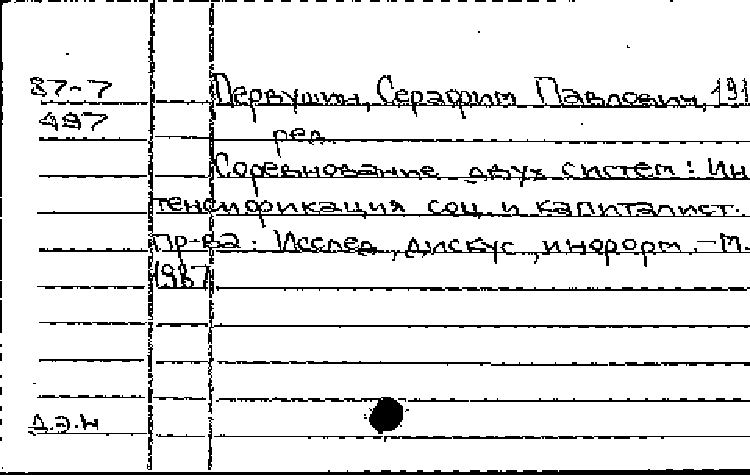 87-7 Первушин, Серафим Павлович, 191
497 ред.
Соревнование двух систем: Ин
тенсификация соц. и капиталист.
пр-ва: Исслед., дискус., информ. – М.
1987
д.э.н